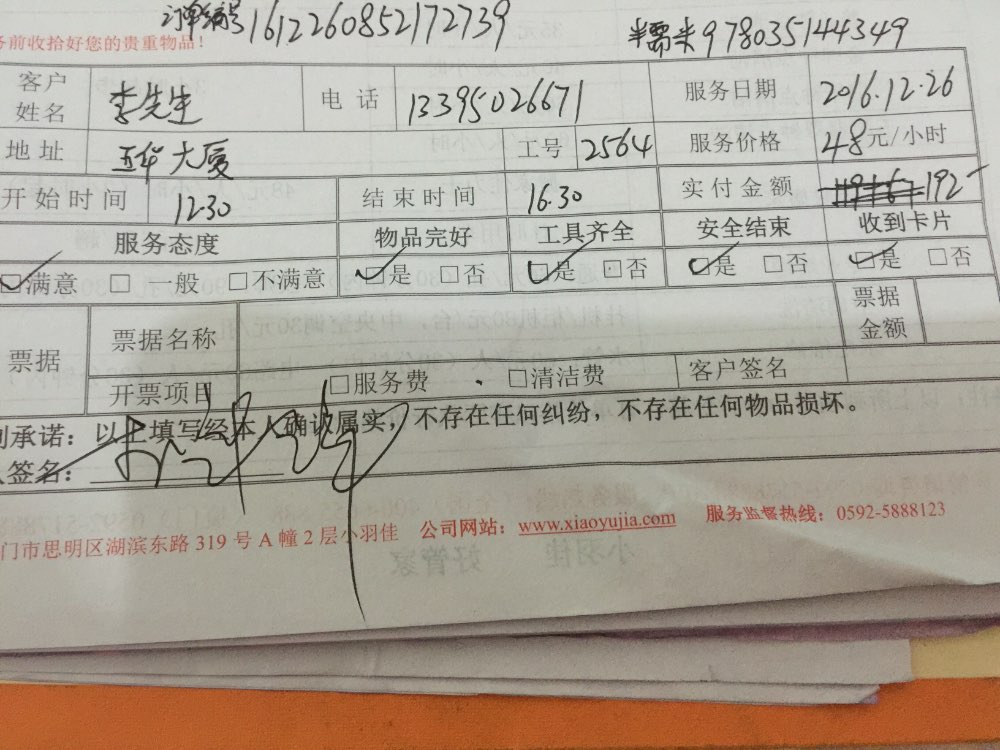 订单编号 1612260852172739
务前收拾好您的贵重物品！ 半需米 978035144349
客户姓名 李先生 电话 13395026671 服务日期 2016.12.26
地址 大厦 工号 2564 服务价格 48元/小时
开始时间 12.30 结束时间 16.30 实付金额 192-
服务态度 物品完好 工具齐全 安全结束 收到卡片
☑满意 □一般 □不满意 ☑是 □否 ☑是 □否 ☑是 □否 ☑是 □否
票据 票据名称 票据金额
开票项目 □服务费 · □清洁费 客户签名
承诺：以上填写经本人确认属实，不存在任何纠纷，不存在任何物品损坏。
签名：
门市思明区湖滨东路 319 号 A 幢 2 层小羽佳 公司网站：www.xiaoyujia.com 服务监督热线：0592-5888123